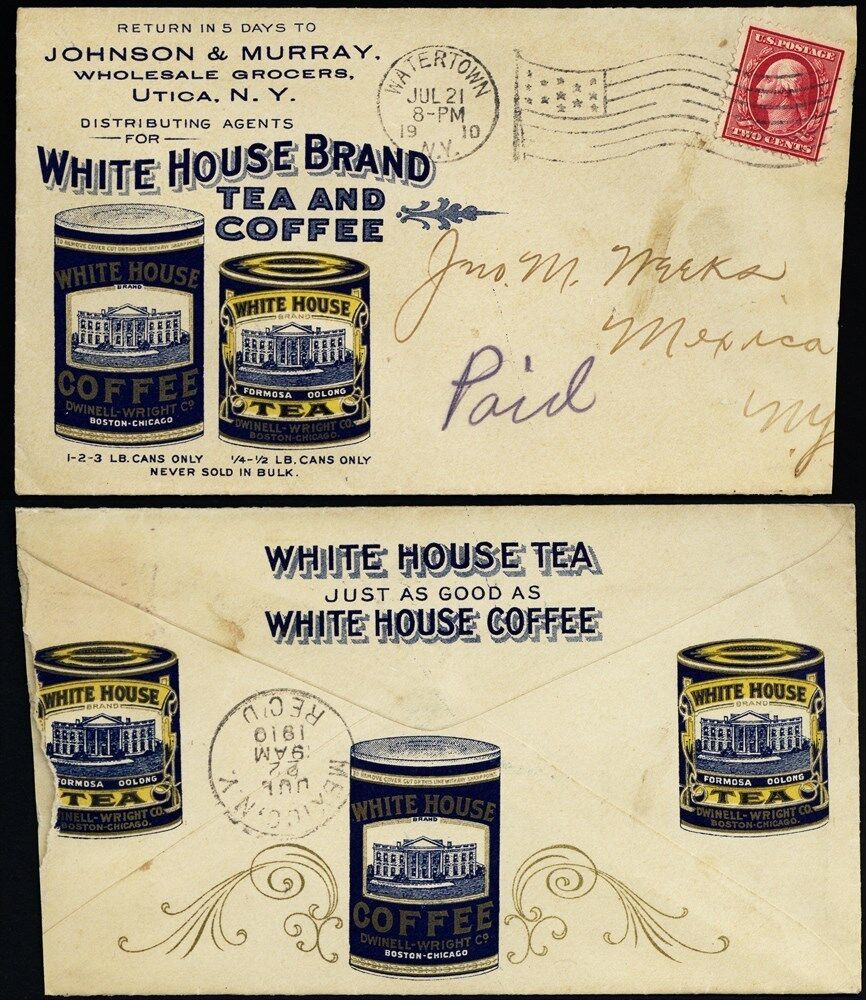 RETURN IN 5 DAYS TO
JOHNSON & MURRAY,
WHOLESALE GROCERS,
UTICA, N. Y.
DISTRIBUTING AGENTS
FOR
WHITE HOUSE BRAND
TEA AND
COFFEE
WATERTOWN
JUL 21
8-PM
19 10
N.Y.
U.S. POSTAGE
TWO CENTS
TO REMOVE COVER CUT ON THIS LINE WITH ANY SHARP POINT
WHITE HOUSE
BRAND
COFFEE
DWINELL-WRIGHT Co.
BOSTON-CHICAGO
WHITE HOUSE
BRAND
FORMOSA OOLONG
TEA
DWINELL-WRIGHT CO.
BOSTON-CHICAGO.
1-2-3 LB. CANS ONLY
1/4-1/2 LB. CANS ONLY
NEVER SOLD IN BULK.
Jno. M. Weeks
Mexico
Paid
NY
WHITE HOUSE TEA
JUST AS GOOD AS
WHITE HOUSE COFFEE
WHITE HOUSE
BRAND
FORMOSA OOLONG
TEA
INELL-WRIGHT CO.
BOSTON-CHICAGO.
MEXICO, N.Y.
JUL
22
9AM
1910
REC'D
TO REMOVE COVER CUT ON THIS LINE WITH ANY SHARP POINT
WHITE HOUSE
BRAND
COFFEE
DWINELL-WRIGHT Co.
BOSTON-CHICAGO
WHITE HOUSE
BRAND
FORMOSA OOLONG
TEA
DWINELL-WRIGHT CO.
BOSTON-CHICAGO.